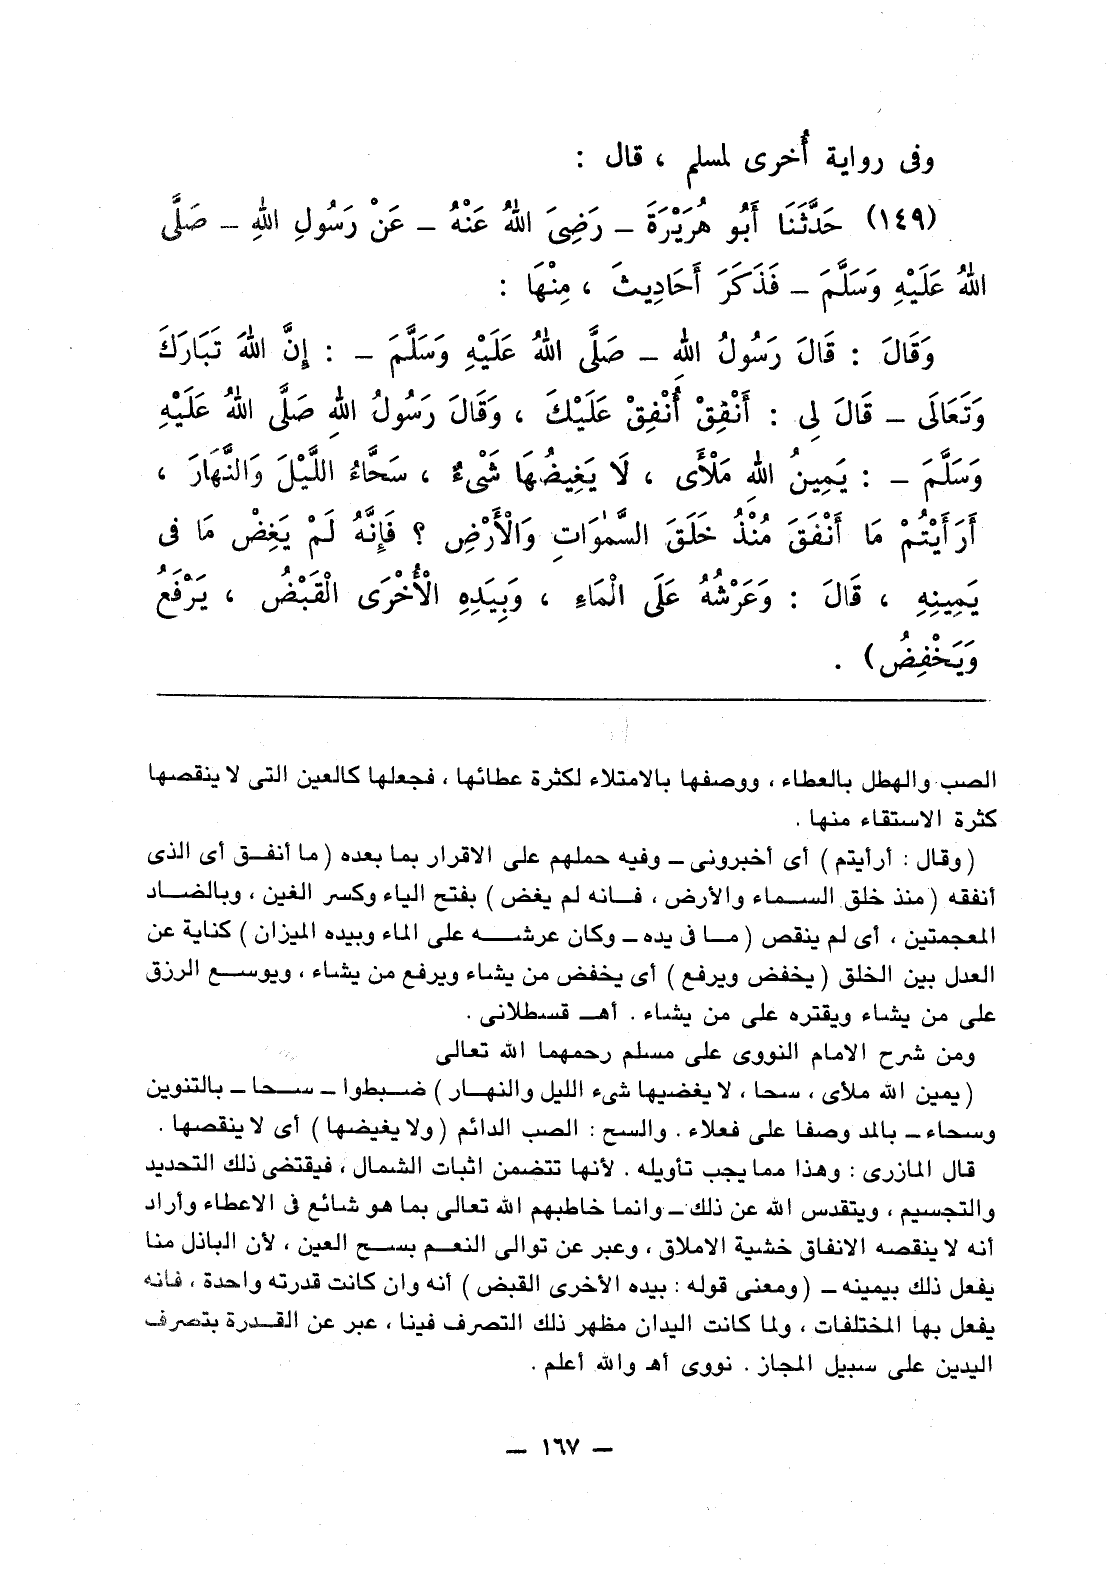 وفى رواية أُخرى لمسلم ، قال :
(١٤٩) حَدَّثَنَا أَبُو هُرَيْرَةَ – رَضِىَ اللهُ عَنْهُ – عَنْ رَسُولِ اللهِ – صَلَّى
اللهُ عَلَيْهِ وَسَلَّمَ – فَذَكَرَ أَحَادِيثَ ، مِنْهَا :
وَقَالَ : قَالَ رَسُولُ اللهِ – صَلَّى اللهُ عَلَيْهِ وَسَلَّمَ – : إِنَّ اللهَ تَبَارَكَ
وَتَعَالَى – قَالَ لِى : أَنْفِقْ أُنْفِقْ عَلَيْكَ ، وَقَالَ رَسُولُ اللهِ صَلَّى اللهُ عَلَيْهِ
وَسَلَّمَ – : يَمِينُ اللهِ مَلْأَى ، لَا يَغِيضُهَا شَىْءٌ ، سَحَّاءُ اللَّيْلَ وَالنَّهَارَ ،
أَرَأَيْتُمْ مَا أَنْفَقَ مُنْذُ خَلَقَ السَّمٰوَاتِ وَالْأَرْضِ ؟ فَإِنَّهُ لَمْ يَغِضْ مَا فى
يَمِينِهِ ، قَالَ : وَعَرْشُهُ عَلَى الْمَاءِ ، وَبِيَدِهِ الْأُخْرَى الْقَبْضُ ، يَرْفَعُ
وَيَخْفِضُ) .
الصب والهطل بالعطاء ، ووصفها بالامتلاء لكثرة عطائها ، فجعلها كالعين التى لا ينقصها
كثرة الاستقاء منها .
(وقال : أرأيتم) أى أخبرونى – وفيه حملهم على الاقرار بما بعده (ما أنفق أى الذى
أنفقه (منذ خلق السماء والأرض ، فانه لم يغض) بفتح الياء وكسر الغين ، وبالضاد
المعجمتين ، أى لم ينقص (ما فى يده – وكان عرشه على الماء وبيده الميزان) كناية عن
العدل بين الخلق (يخفض ويرفع) أى يخفض من يشاء ويرفع من يشاء ، ويوسع الرزق
على من يشاء ويقتره على من يشاء . أهـ قسطلانى .
ومن شرح الامام النووى على مسلم رحمهما الله تعالى
(يمين الله ملأى ، سحا ، لا يغضيها شىء الليل والنهار) ضبطوا – سحا – بالتنوين
وسحاء – بالمد وصفا على فعلاء . والسح : الصب الدائم (ولا يغيضها) أى لا ينقصها .
قال المازرى : وهذا مما يجب تأويله . لأنها تتضمن اثبات الشمال ، فيقتضى ذلك التحديد
والتجسيم ، ويتقدس الله عن ذلك – وانما خاطبهم الله تعالى بما هو شائع فى الاعطاء وأراد
أنه لا ينقصه الانفاق خشية الاملاق ، وعبر عن توالى النعم بسح العين ، لأن الباذل منا
يفعل ذلك بيمينه – (ومعنى قوله : بيده الأخرى القبض) أنه وان كانت قدرته واحدة ، فانه
يفعل بها المختلفات ، ولما كانت اليدان مظهر ذلك التصرف فينا ، عبر عن القدرة بتصرف
اليدين على سبيل المجاز . نووى أهـ والله أعلم .
– ١٦٧ –